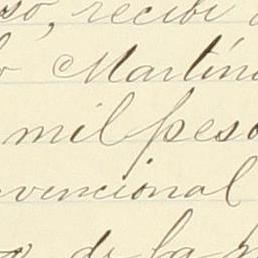 so, recibí
Martín
mil peso
vencional
de la